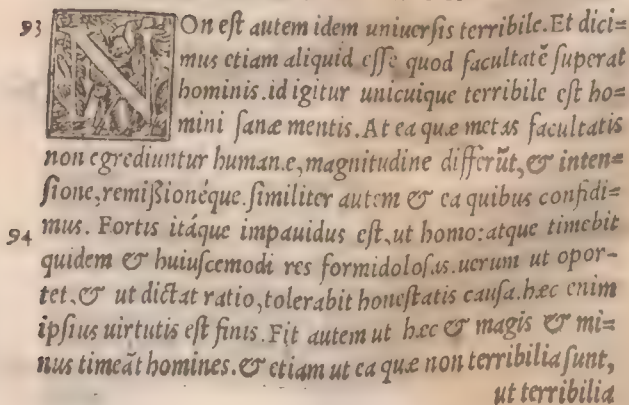 93 NOn eſt autem idem uniuerſis terribile. Et dici=
mus etiam aliquid eſſe quod facultatē ſuperat
hominis. id igitur unicuique terribile eſt ho=
mini ſanæ mentis. At ea quæ metas facultatis
non egrediuntur humanæ, magnitudine differūt, & inten=
ſione, remißionéque. ſimiliter autem & ea quibus confidi=
94 mus. Fortis itáque impauidus eſt, ut homo: atque timebit
quidem & huiuſcemodi res formidoloſas. uerum ut opor-
tet, & ut dictat ratio, tolerabit honeſtatis cauſa. hæc enim
ipſius uirtutis eſt finis. Fit autem ut hæc & magis & mi=
nus timeāt homines. & etiam ut ea quæ non terribilia ſunt,
ut terribilia